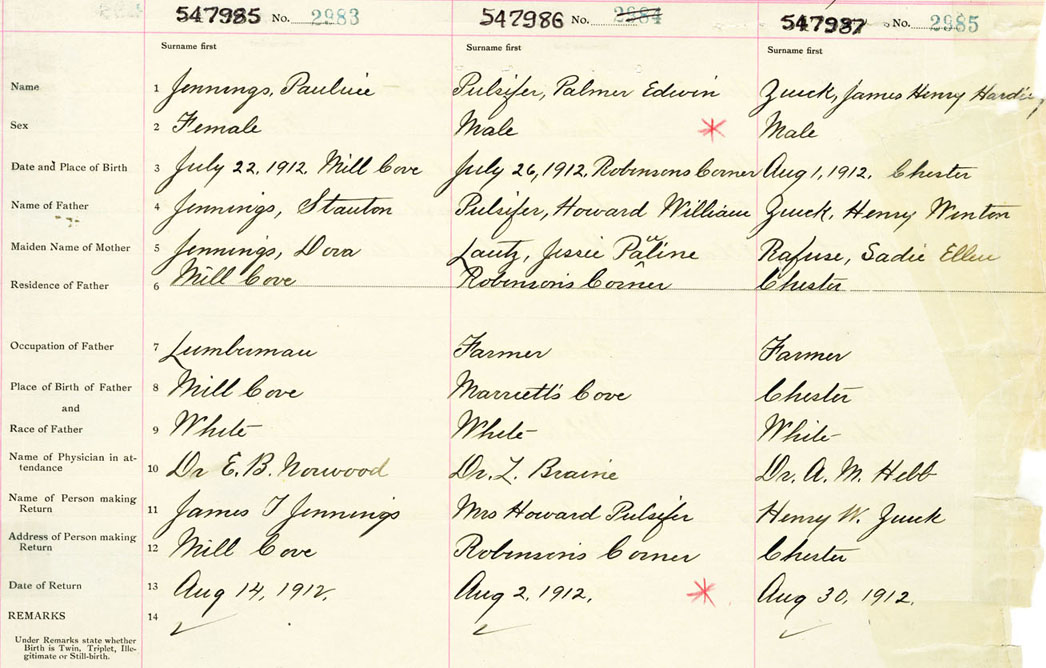 547985 No. 2983 547986 No. 2984 547987 No. 2985
Surname first Surname first Surname first
Name 1 Jennings, Pauline Pulsifer, Palmer Edwin Zwick, James Henry Hardie
Sex 2 Female Male Male
Date and Place of Birth 3 July 22, 1912, Mill Cove July 26, 1912, Robinsons Corner Aug 1, 1912, Chester
Name of Father 4 Jennings, Stanton Pulsifer, Howard William Zwick, Henry Winton
Maiden Name of Mother 5 Jennings, Dora Lantz, Jessie Pauline Rafuse, Sadie Ellen
Residence of Father 6 Mill Cove Robinson's Corner Chester
Occupation of Father 7 Lumberman Farmer Farmer
Place of Birth of Father 8 Mill Cove Marriett's Cove Chester
and
Race of Father 9 White White White
Name of Physician in at-
tendance 10 Dr E. B. Norwood Dr. L. Braine Dr. A. M. Hebb
Name of Person making
Return 11 James T Jennings Mrs Howard Pulsifer Henry W. Zwick
Address of Person making
Return 12 Mill Cove Robinson's Corner Chester
Date of Return 13 Aug 14, 1912. Aug 2, 1912. Aug 30, 1912.
REMARKS 14
Under Remarks state whether
Birth is Twin, Triplet, Ille-
gitimate or Still-birth.